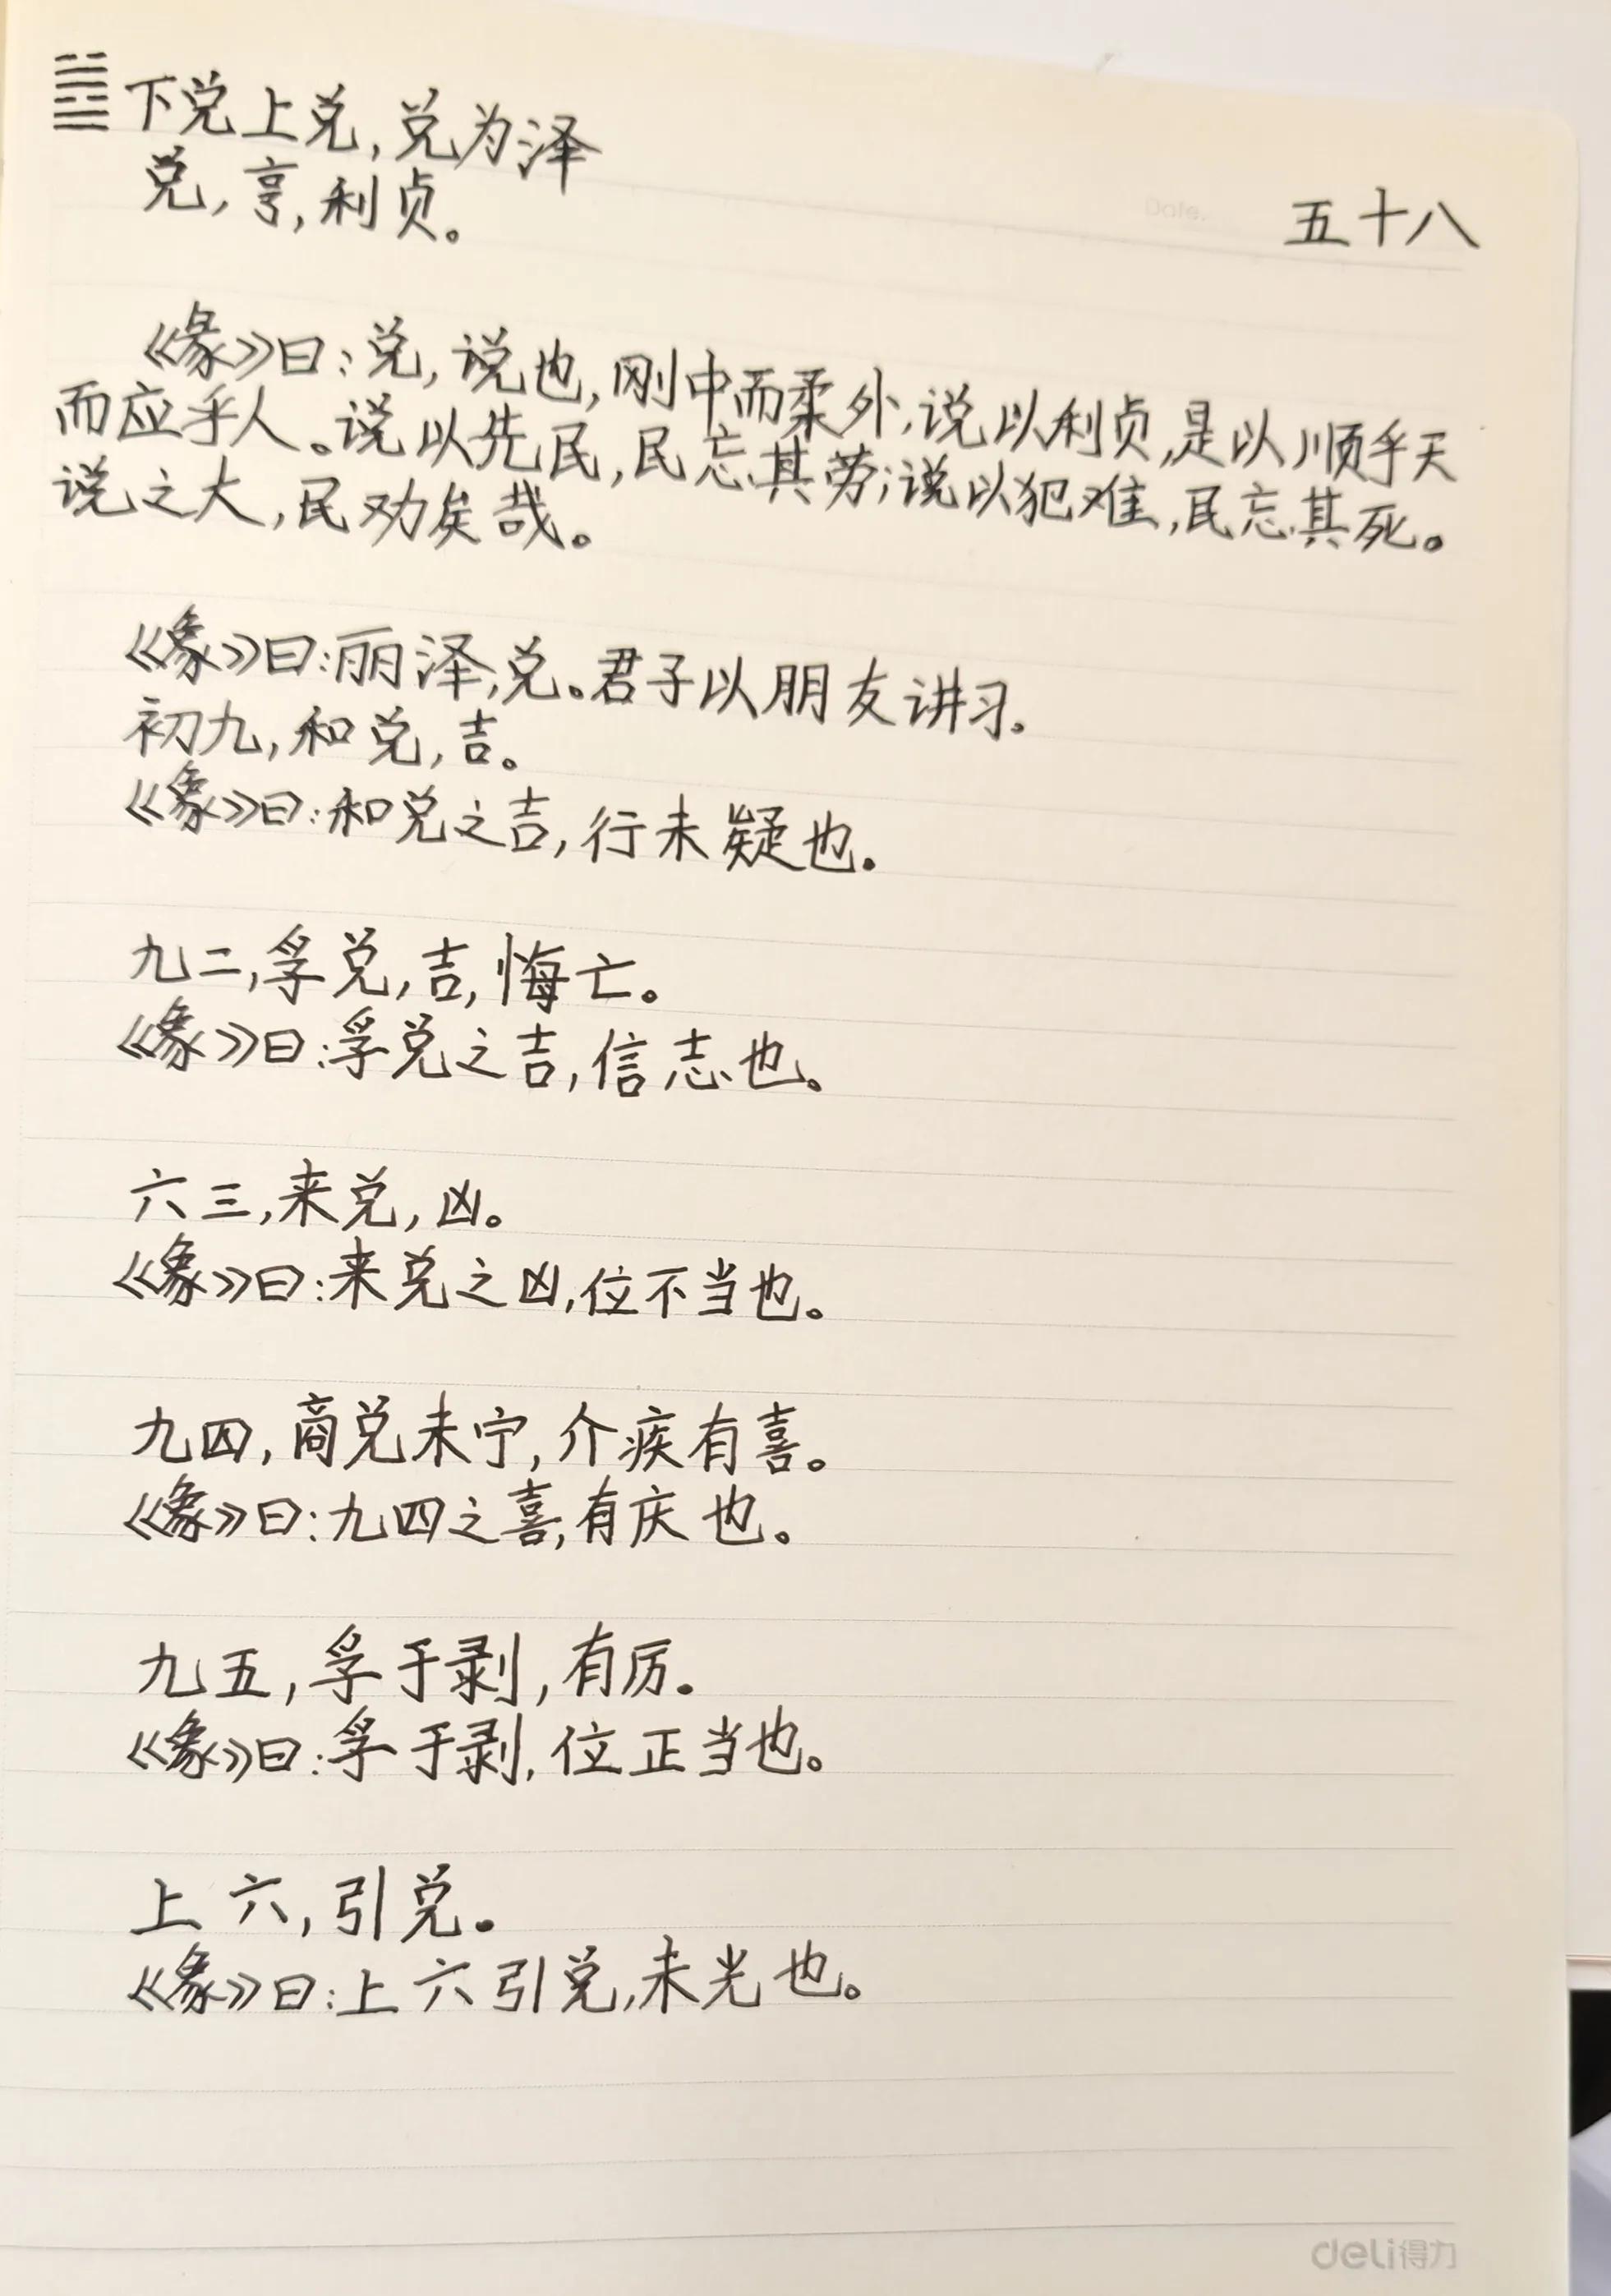 ䷹下兑上兑,兑为泽
兑,亨,利贞。
Date.
五十八
《彖》曰:兑,说也,刚中而柔外,说以利贞,是以顺乎天
而应乎人。说以先民,民忘其劳;说以犯难,民忘其死。
说之大,民劝矣哉。
《象》曰:丽泽,兑。君子以朋友讲习.
初九,和兑,吉。
《象》曰:和兑之吉,行未疑也.
九二,孚兑,吉,悔亡。
《象》曰:孚兑之吉,信志也。
六三,来兑,凶。
《象》曰:来兑之凶,位不当也。
九四,商兑未宁,介疾有喜。
《象》曰:九四之喜,有庆也。
九五,孚于剥,有厉.
《象》曰:孚于剥,位正当也。
上六,引兑.
《象》曰:上六引兑,未光也。
deli得力